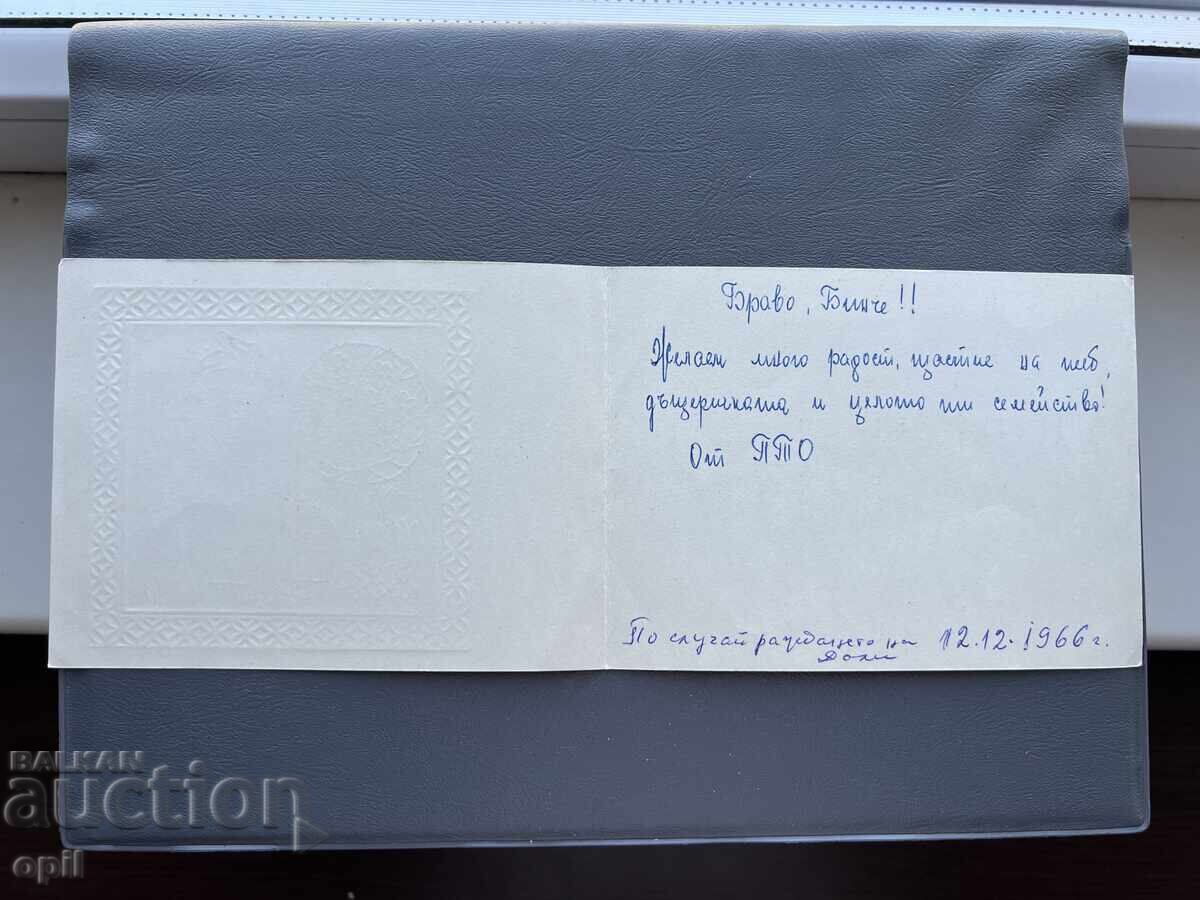 Браво, Бинче!!
Желаем много радост, щастие на теб,
дъщеричката и цялото ти семейство!
От ПТО
По случай раждането на 12.12.1966 г.
BALKAN
auction
opil